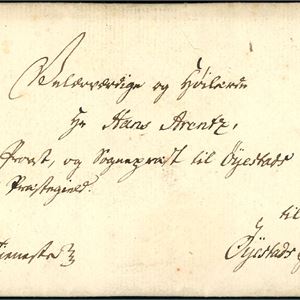 Velærværdige og Høilærde
Hr Hans Arentz,
Provst, og Sognepræst til Øyestads
Præstegield.
til
Tieneste
Øyestads